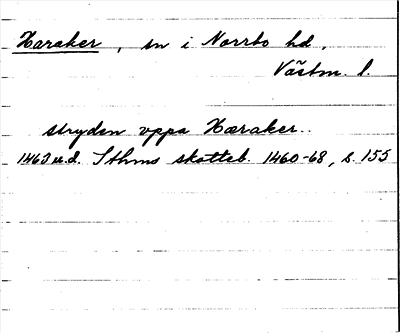 Haraker, sn i Norrbo hd,
Västm. l.
stryden vppa Haraker..
1463 u.d. Sthms skotteb. 1460-68, s. 155